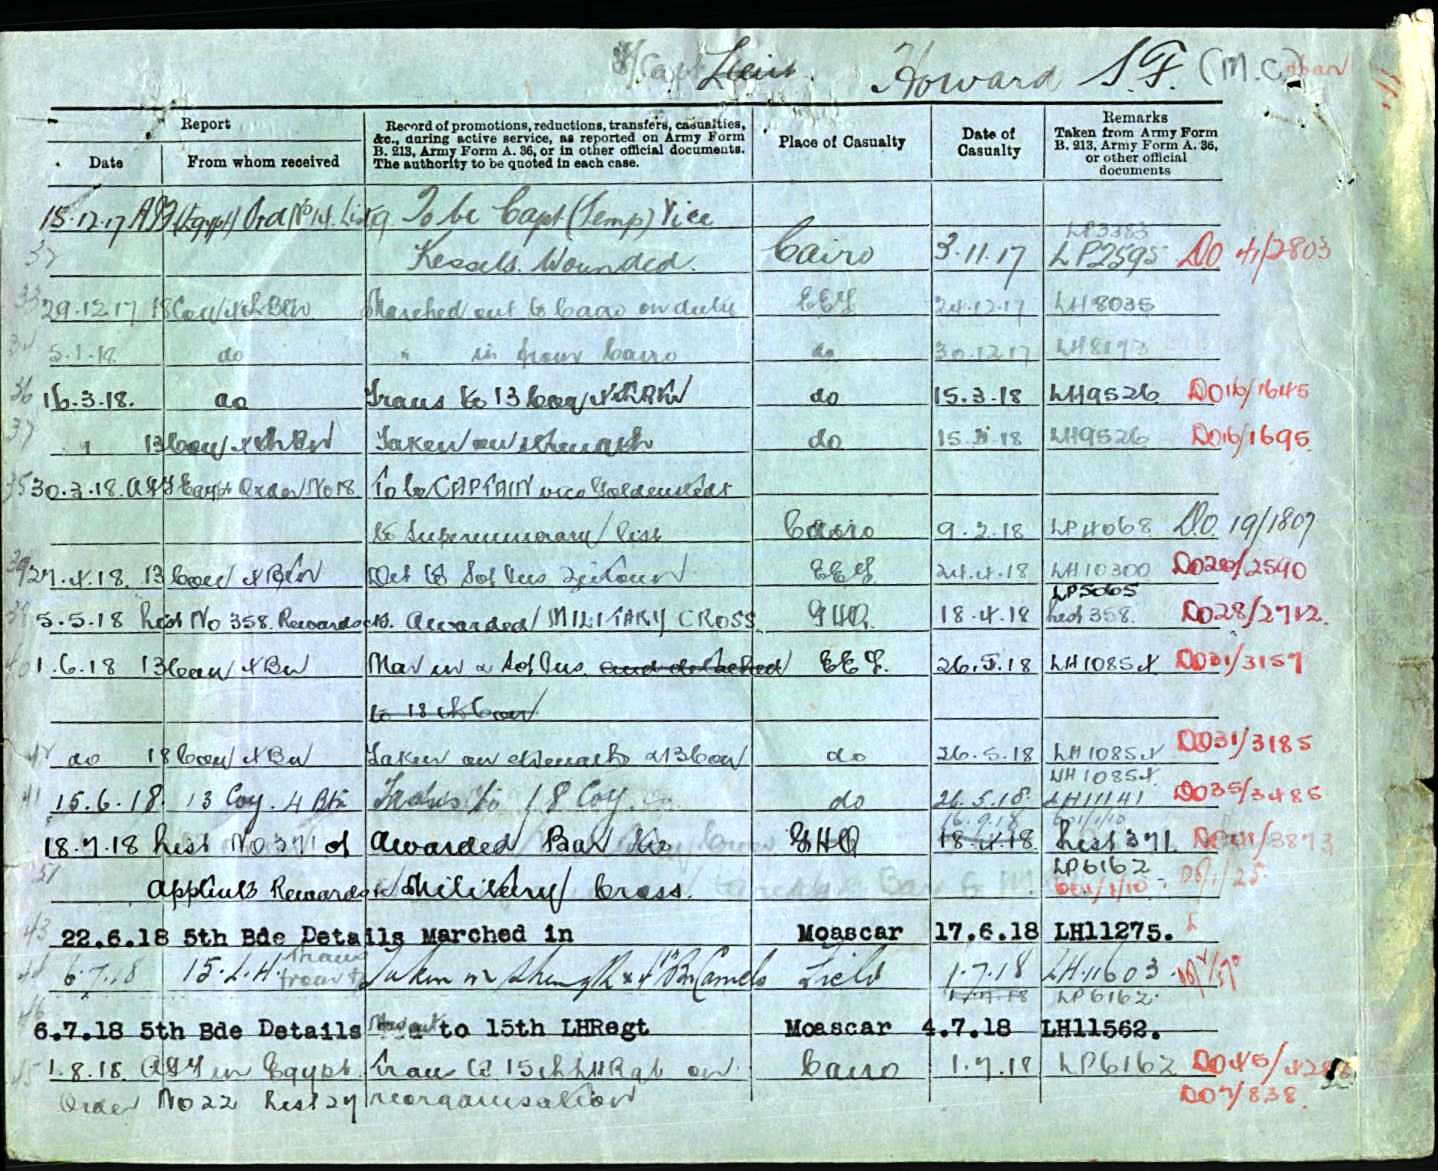 Capt Lieut Howard S.F. (M.C.) bar
Report
Date
From whom received
Record of promotions, reductions, transfers, casualties,
&c., during active service, as reported on Army Form
B. 213, Army Form A. 36, or in other official documents.
The authority to be quoted in each case.
Place of Casualty
Date of
Casualty
Remarks
Taken from Army Form
B. 213, Army Form A. 36,
or other official
documents
15.12.17 (Egypt) Ord No 14. List To be Capt (Temp) Vice
LP3383
Kessels. Wounded. Cairo 3.11.17 LP2595 DO 41/2803
33 29.12.17 Marched out to Cairo on duty EEF 24.12.17 LH8035
34 5.1.18 do " in from Cairo do 30.12.17 LH8193
36 16.3.18. do Trans to 13 Coy 4th Bn do 15.3.18 LH9526 DO16/1645
37 " 13 Coy 4th Bn Taken on strength do 15.3.18 LH9526 DO16/1695
35 30.3.18. AIF Egypt Order No 18 To be CAPTAIN vice Goldenstedt
to Supernumerary list Cairo 9.2.18 LP4068 DO 19/1807
27.4.18. 13 Coy 4 Bn Det to Sch Ins Zeitoun EEF 24.4.18 LH10300 DO26/2590
LP5065
5.5.18 List No 358. Rewards Awarded MILITARY CROSS GHQ. 18.4.18 List 358. DO28/2742.
40 1.6.18 13 Coy 4 Bn Mar in Sch Ins. and detached EEF. 26.5.18 LH10854 DO31/3157
to 18th Coy
42 do 18 Coy 4 Bn Taken on strength 13 Coy do 26.5.18 LH10854 DO31/3185
LH10854
41 15.6.18 13 Coy. 4 Btn Trans to 18 Coy. do 26.5.18 LH11141 DO35/3485
16.9.18
18.7.18 List No 371 of Awarded Bar to GHQ 18.4.18 List 371 3873
LP6162
51 Appts Rewards Military Cross.
43 22.6.18 5th Bde Details Marched in Moascar 17.6.18 LH11275.
44 6.7.18 15.L.H. trans from Taken on strength 4 Bn Camels Field 1.7.18 LH.11603.
LP6162
46 6.7.18 5th Bde Details to 15th LHRegt Moascar 4.7.18 LH11562.
45 1.8.18. AIF in Egypt Tran to 15th LHRgt on Cairo 1.7.18 LP6162 DO45/
Order No 22 List 27 reorganisation DO7/838.